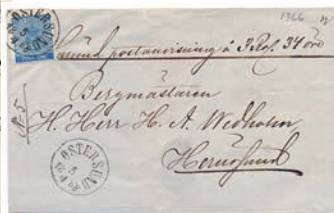 1366
ÖSTERSUND
5
postanvisning á 3 Rd. 34 öre
Bergmästaren
H. Herr H. A. Wedholm
Hernösand
ÖSTERSUND
5